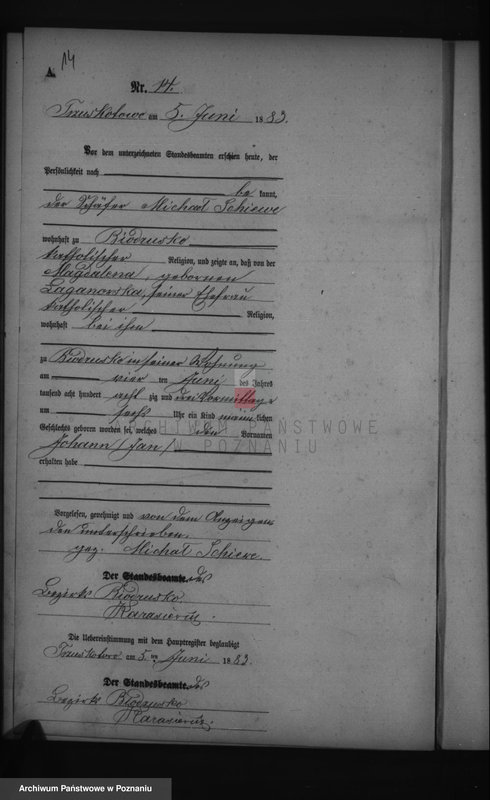 A. 14
Nr. 14.
Truskotowo am 5. Juni 1883.
Vor dem unterzeichneten Standesbeamten erschien heute, der
Persönlichkeit nach
bekannt,
der Schäfer Michał Schiewe
wohnhaft zu Biedrusko
katholischer Religion, und zeigte an, daß von der
Magdalena, geborenen
Łaganowska, seiner Ehefrau
katholischer Religion,
wohnhaft bei ihm
zu Biedrusko in seiner Wohnung
am vierten Juni des Jahres
tausend acht hundert achtzig und drei Vormittags
um sechs Uhr ein Kind männlichen
Geschlechts geboren worden sei, welches den Vornamen
Johann (Jan)
erhalten habe
ARCHIWUM PAŃSTWOWE
W POZNANIU
Vorgelesen, genehmigt und von dem Anzeigen
den unterschrieben.
gez. Michał Schiewe.
Der Standesbeamte des
Bezirks Biedrusko
Karasiewicz.
Die Uebereinstimmung mit dem Hauptregister beglaubigt
am 5. ten Juni 1883.
Der Standesbeamte des
Bezirks Biedrusko
Karasiewicz.
Archiwum Państwowe w Poznaniu